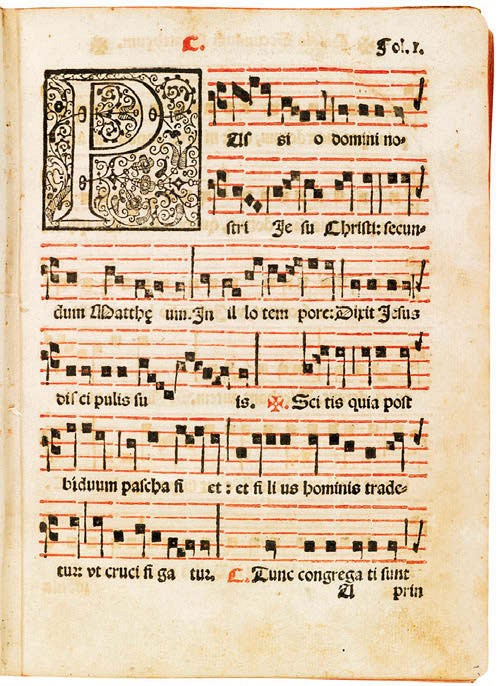 C. Fol. 1.
PAs si o domini no-
stri Je su Christi: secun-
dum Matthę um. In il lo tem pore: Dixit Jesus
dis ci pulis su is. ✠. Sci tis quia post
biduum pascha fi et: et fi li us hominis trade-
tur: vt cruci fi ga tur. C. Tunc congrega ti sunt
A prin